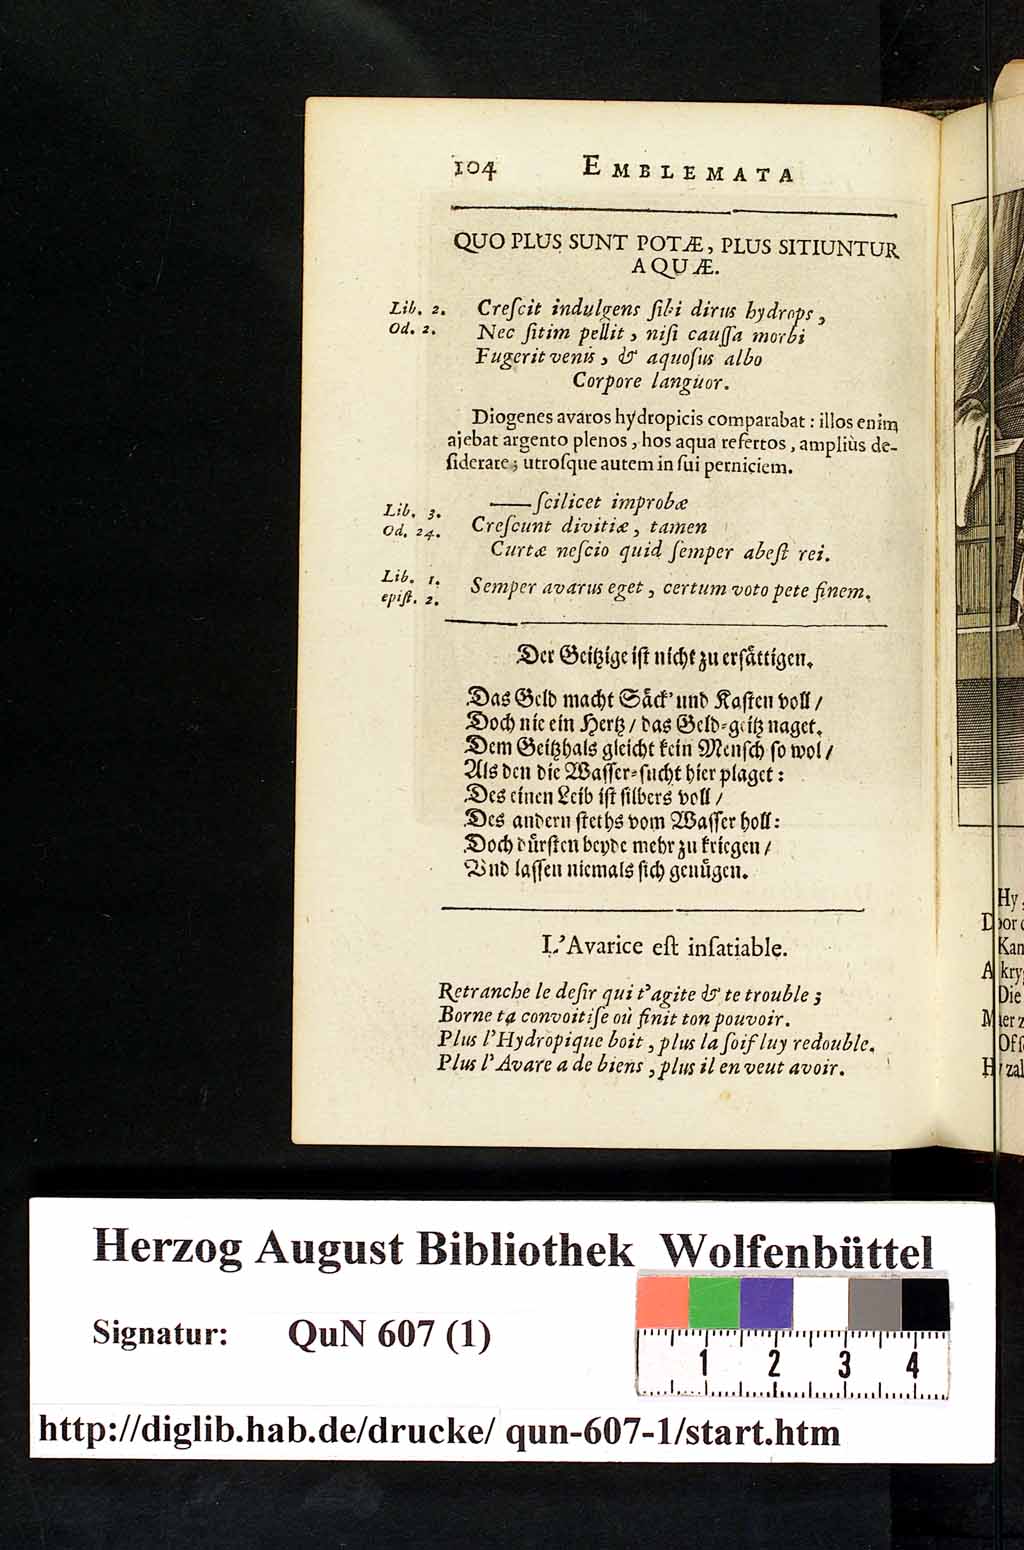 104 EMBLEMATA
QUO PLUS SUNT POTÆ, PLUS SITIUNTUR
AQUÆ.
Lib. 2. Creſcit indulgens ſibi dirus hydrops,
Od. 2. Nec ſitim pellit, niſi cauſſa morbi
Fugerit venis, & aquoſus albo
Corpore languor.
Diogenes avaros hydropicis comparabat: illos enim
ajebat argento plenos, hos aqua refertos, ampliùs de-
ſiderare; utroſque autem in ſui perniciem.
Lib. 3. —— ſcilicet improbæ
Od. 24. Creſcunt divitiæ, tamen
Curtæ neſcio quid ſemper abeſt rei.
Lib. 1.
epiſt. 2. Semper avarus eget, certum voto pete finem.
Der Geitzige iſt nicht zu erſättigen.
Das Geld macht Säck' und Kaſten voll /
Doch nie ein Hertz / das Geld-geitz naget.
Dem Geitzhals gleicht kein Menſch ſo wol /
Als den die Waſſer-ſucht hier plaget:
Des einen Leib iſt ſilbers voll /
Des andern ſteths vom Waſſer holl:
Doch dürſten beyde mehr zu kriegen /
Vnd laſſen niemals ſich genügen.
L'Avarice eſt inſatiable.
Retranche le deſir qui t'agite & te trouble;
Borne ta convoitiſe où finit ton pouvoir.
Plus l'Hydropique boit, plus la ſoif luy redouble.
Plus l'Avare a de biens, plus il en veut avoir.
Hy
Door
Kan
Die
Herzog August Bibliothek Wolfenbüttel
Signatur: QuN 607 (1)
1 2 3 4
http://diglib.hab.de/drucke/ qun-607-1/start.htm